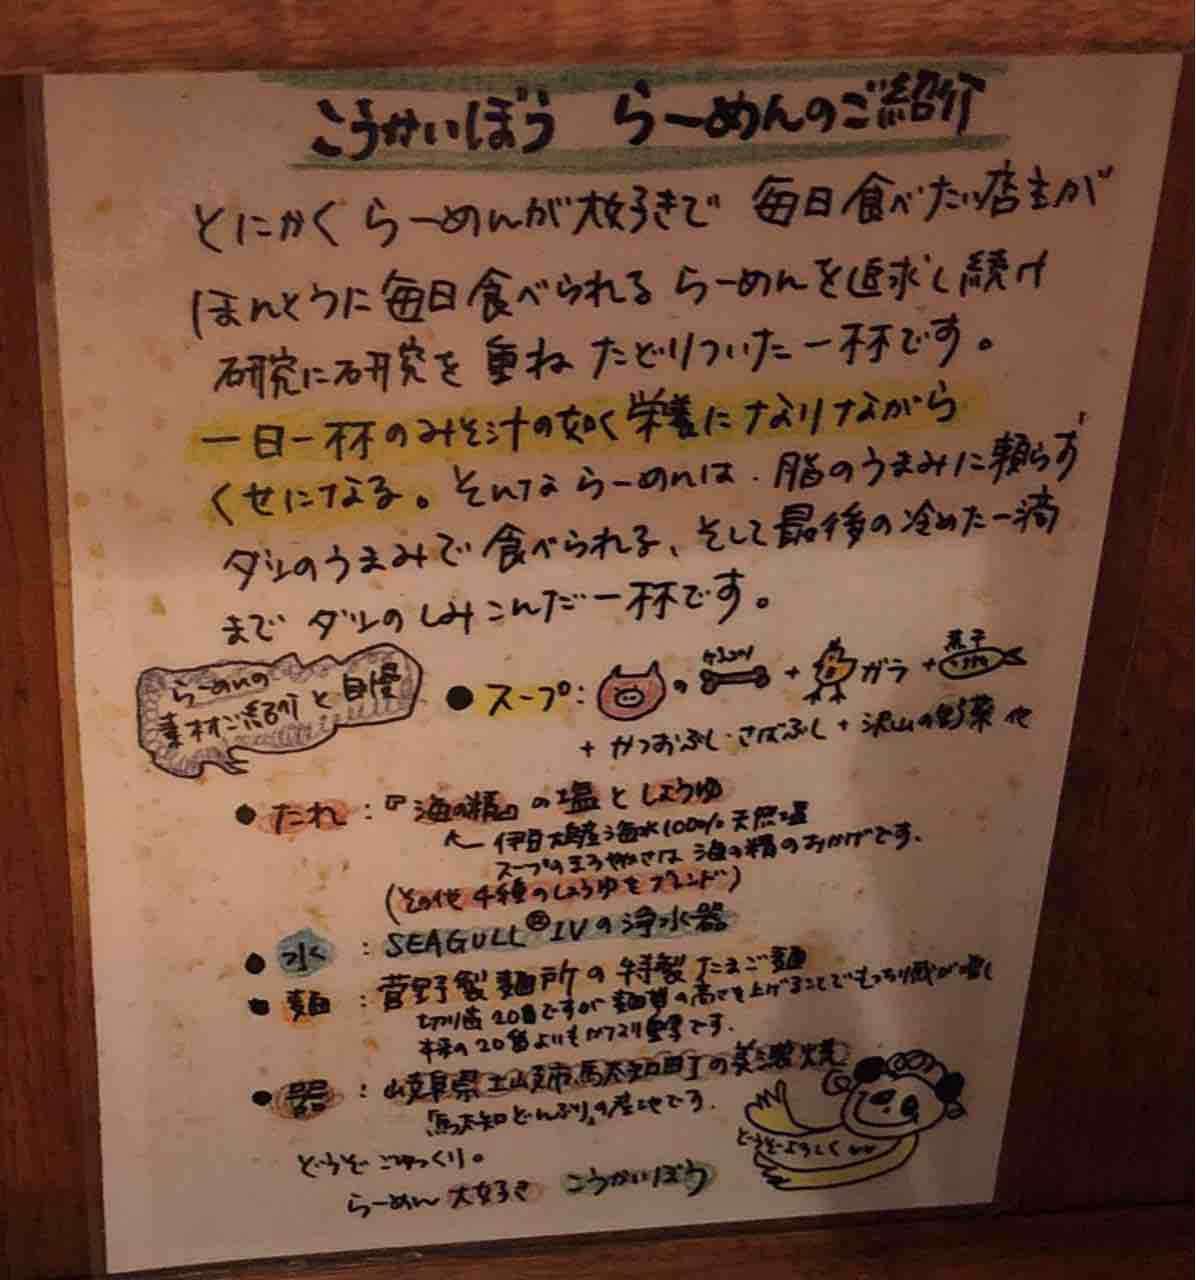 こうかいぼう らーめんのご紹介
とにかく らーめんが大好きで 毎日食べたい店主が
ほんとうに毎日食べられる らーめんを追求し続け
研究に研究を重ね たどりついた一杯です。
一日一杯のみそ汁の如く栄養になりながら
くせになる。そんならーめんは、脂のうまみに頼らず
ダシのうまみで食べられる、そして最後の冷めた一滴
まで ダシのしみこんだ一杯です。
らーめんの
素材ご紹介と自慢
●スープ:の げんこつ + ガラ + 煮干
+ かつおぶし・さばぶし + 沢山の野菜 他
●たれ:『海の精』の塩としょうゆ
伊豆大島産海水100%天然塩
スープのまろやかさは 海の精のおかげです。
(その他 4種のしょうゆをブレンド)
●水:SEAGULL® IVの浄水器
●麺:菅野製麺所の特製たまご麺
切り歯20番ですが 麺帯の高さを上げることでもっちり感が増し
本来の20番よりもかなり です。
●器:岐阜県土岐市駄知町の美濃焼
「駄知どんぶり」の産地です。
どうぞよろしく
どうぞごゆっくり。
らーめん大好き こうかいぼう